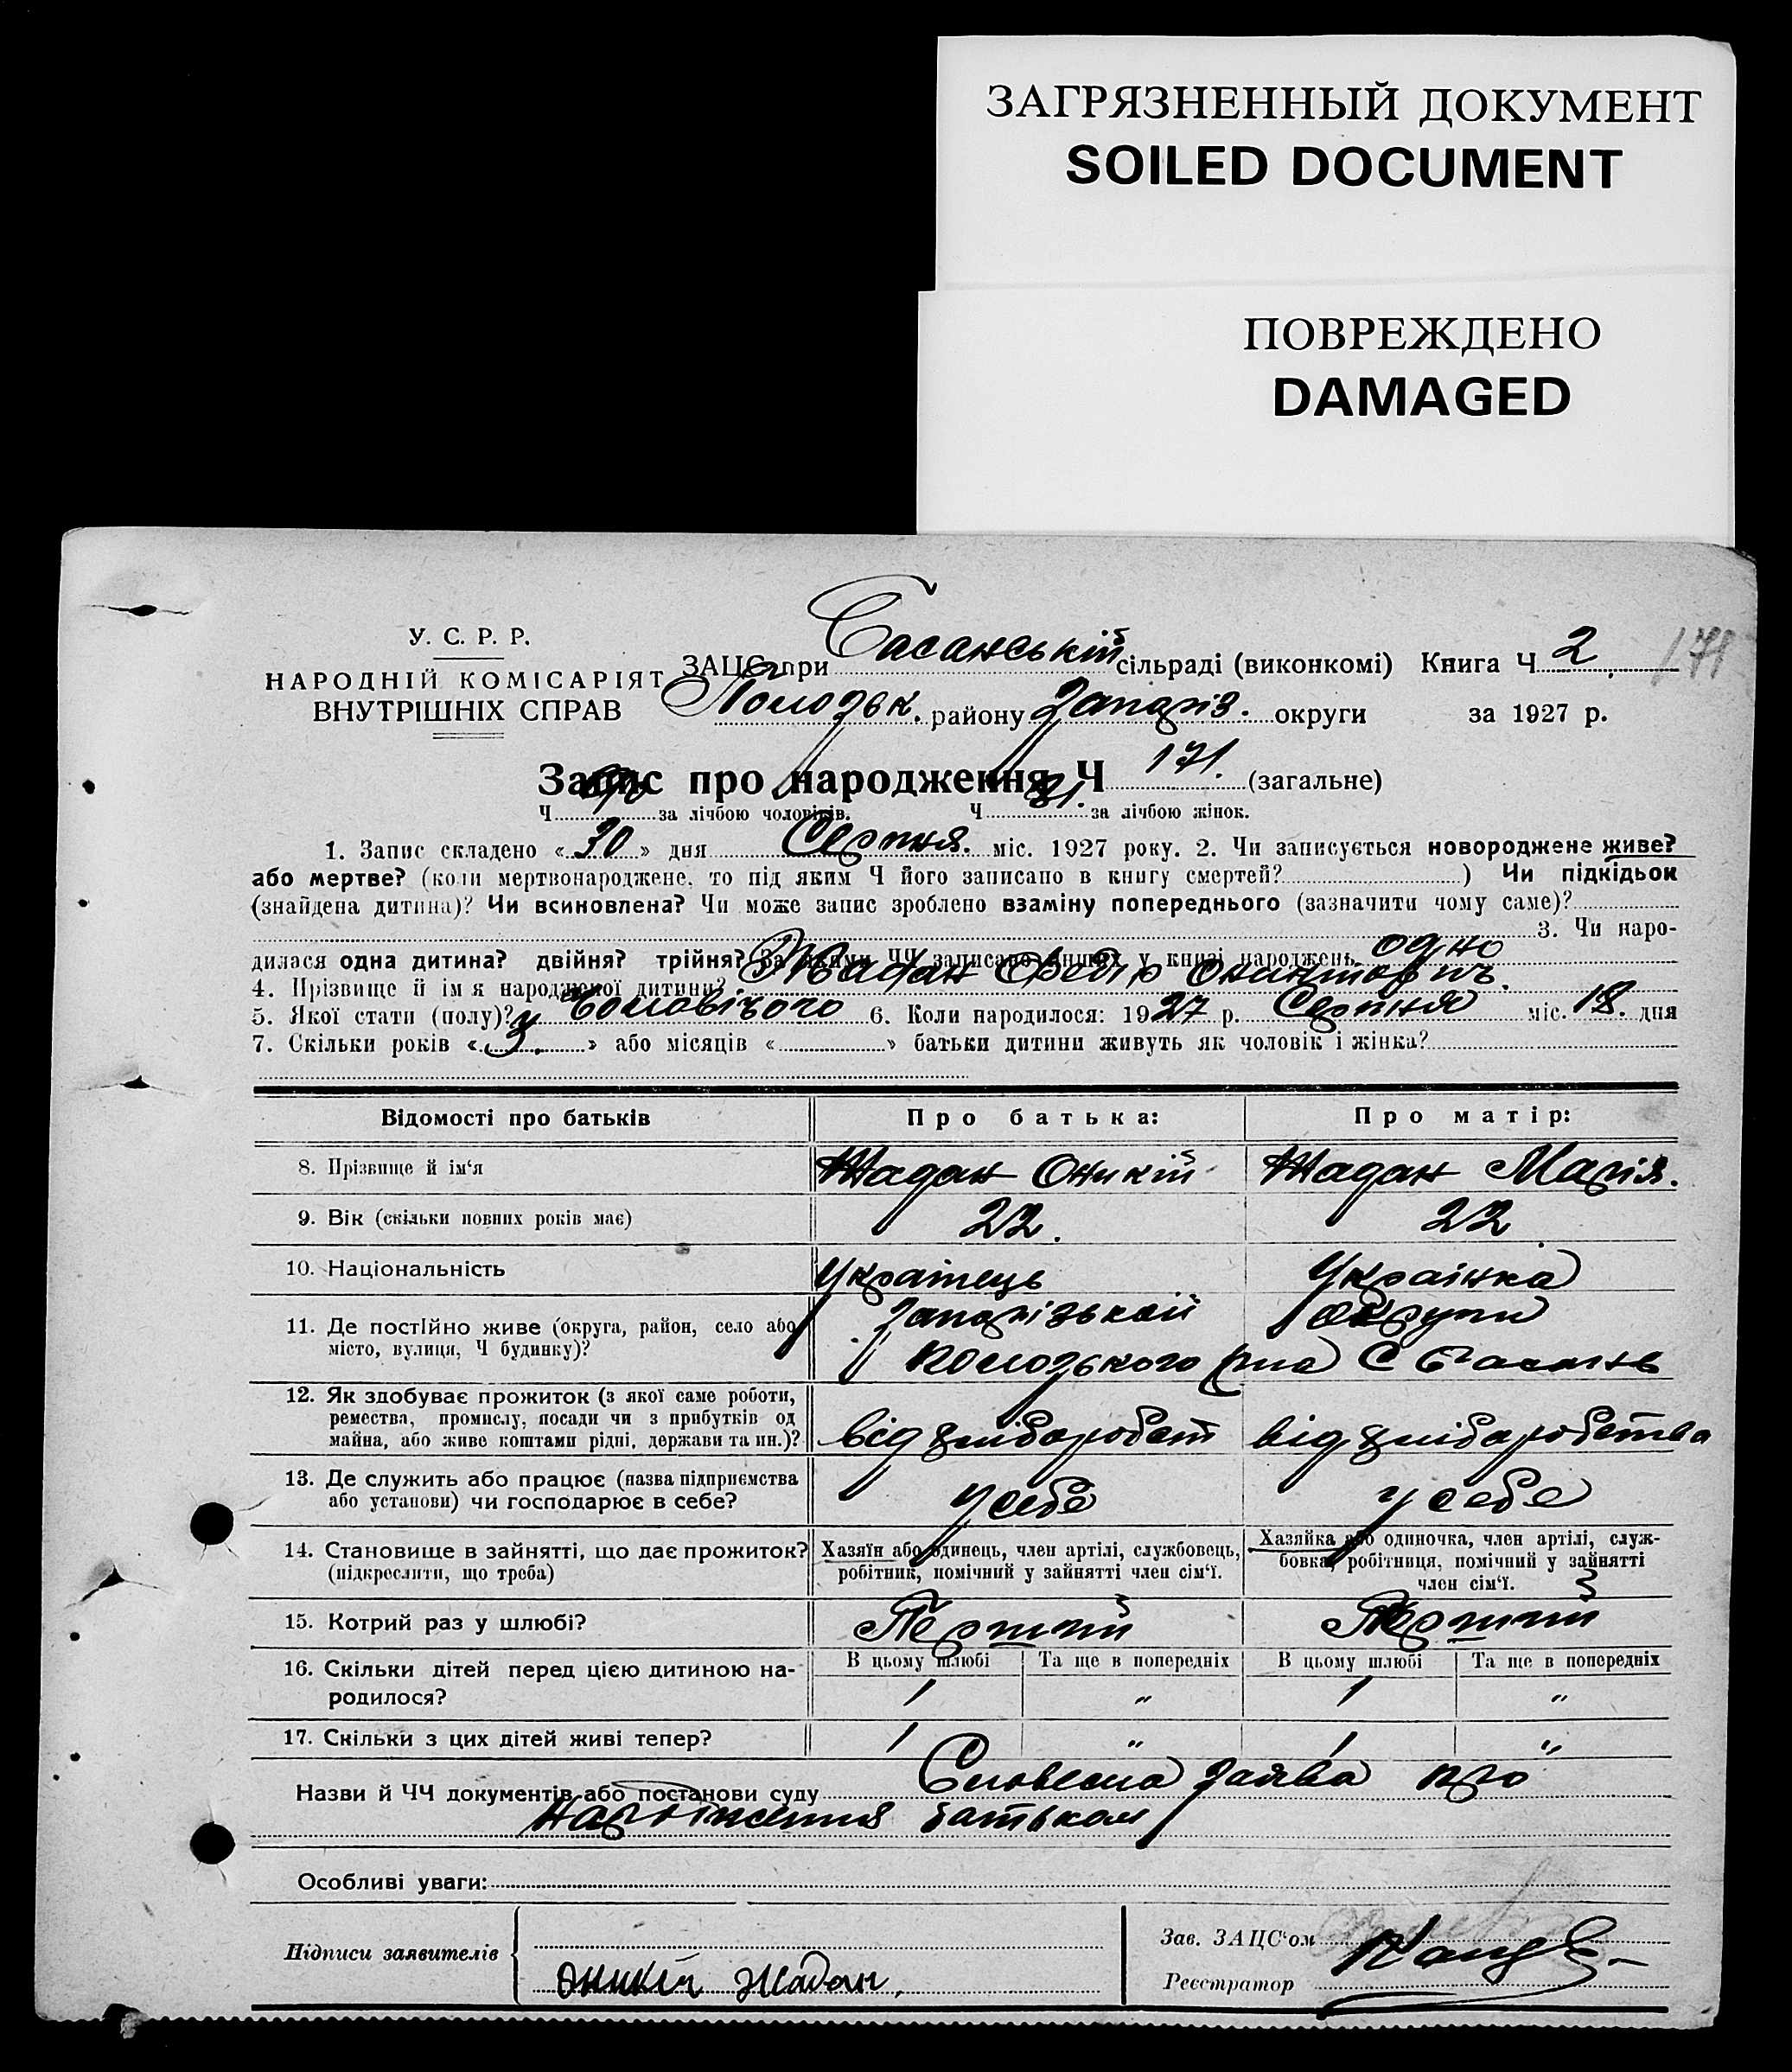 ЗАГРЯЗНЕННЫЙ ДОКУМЕНТ
SOILED DOCUMENT
ПОВРЕЖДЕНО
DAMAGED
171
У. С. Р. Р.
НАРОДНІЙ КОМІСАРІЯТ
ВНУТРІШНІХ СПРАВ
ЗАЦС при Басанській сільраді (виконкомі) Книга Ч 2
Пологськ. району Запоріз. округи за 1927 р.
Запис про народження Ч 171. (загальне)
Ч за лічбою чоловіків. Ч 81. за лічбою жінок.
1. Запис складено «30» дня Серпня. міс. 1927 року. 2. Чи записується новороджене живе?
або мертве? (коли мертвонароджене, то під яким Ч його записано в книгу смертей? ) Чи підкідьок
(знайдена дитина)? Чи всиновлена? Чи може запис зроблено взаміну попереднього (зазначити чому саме)?
3. Чи наро-
дилася одна дитина? двійня? трійня? За якими ЧЧ записано инших у книзі народжень одно
4. Прізвище й ім я народженої дитини? Жадан Федір
5. Якої стати (полу)? Чоловічого 6. Коли народилося: 1927 р. Серпня міс. 18. дня
7. Скільки років «3.» або місяців « » батьки дитини живуть як чоловік і жінка?
Відомості про батьків Про батька: Про матір:
8. Прізвище й ім'я Жадан Оникій Жадан Марія.
9. Вік (скільки повних років має) 22. 22
10. Національність Українець Українка
11. Де постійно живе (округа, район, село або Запорізької округи
місто, вулиця, Ч будинку)? Пологського р-на С Басань
12. Як здобуває прожиток (з якої саме роботи,
ремества, промислу, посади чи з прибутків од
майна, або живе коштами рідні, держави та ин.)? від хліборобст від хліборобства
13. Де служить або працює (назва підприємства
або установи) чи господарює в себе? у себе у себе
14. Становище в зайнятті, що дає прожиток? Хазяїн або одинець, член артілі, службовець, Хазяйка або одиночка, член артілі, служ-
(підкреслити, що треба) робітник, помічний у зайнятті член сім'ї. бовка, робітниця, помічний у зайнятті
член сім'ї.
15. Котрий раз у шлюбі? Перший Перший
16. Скільки дітей перед цією дитиною на- В цьому шлюбі Та ще в попередніх В цьому шлюбі Та ще в попередніх
родилося? 1 " 1 "
17. Скільки з цих дітей живі тепер? 1 " 1 "
Назви й ЧЧ документів або постанови суду Словесна заява про
народження батьком
Особливі уваги:
Підписи заявителів
Оникій Жадан.
Зав. ЗАЦС'ом
Реєстратор